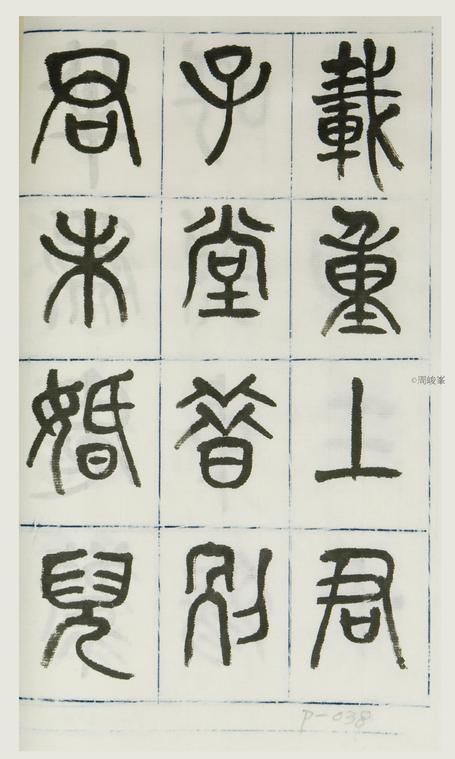 載重上君
子堂昔別
君未婚兒
©周峻峯
P-038